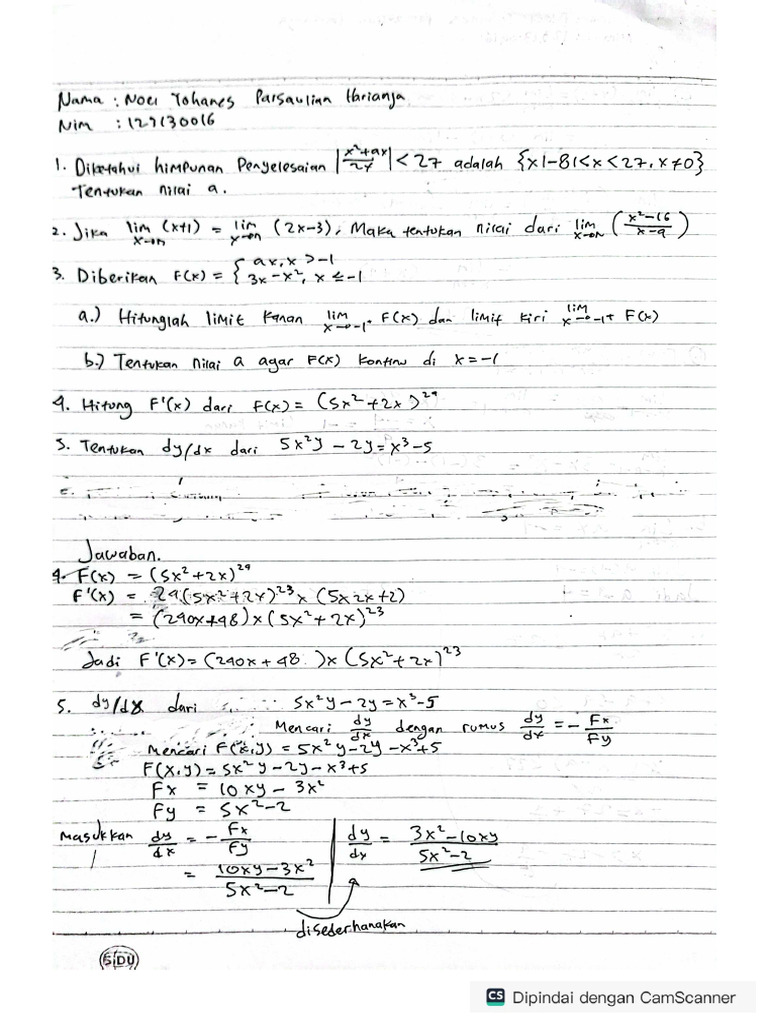 Nama : Noel Yohanes Parsaulian Harianja
Nim : 127130016
1. Diketahui himpunan Penyelesaian |x²+ax / 27| < 27 adalah {x|-81<x<27, x≠0}
Tentukan nilai a.
2. Jika lim x→n (x+1) = lim x→n (2x-3), Maka tentukan nilai dari lim x→n (x²-16 / x-4)
3. Diberikan F(x) = { ax, x > -1
3x-x², x ≤ -1
a.) Hitunglah limit kanan lim x→-1⁻ F(x) dan limit kiri lim x→-1+ F(x)
b.) Tentukan nilai a agar F(x) kontinu di x = -1
4. Hitung F'(x) dari F(x) = (5x²+2x)²⁴
5. Tentukan dy/dx dari 5x²y - 2y = x³-5
Jawaban.
4. F(x) = (5x²+2x)²⁴
F'(x) = 24(5x²+2x)²³ x (5x2x+2)
= (240x+48) x (5x²+2x)²³
Jadi F'(x) = (240x + 48 ) x (5x²+2x)²³
5. dy/dx dari 5x²y-2y = x³-5
Mencari dy/dx dengan rumus dy/dx = - Fx/Fy
Mencari F(x,y) = 5x²y-2y-x³+5
F(x,y) = 5x²y-2y-x³+5
Fx = 10xy - 3x²
Fy = 5x²-2
Masukkan dy/dx = - Fx/Fy | dy/dx = 3x²-10xy / 5x²-2
= 10xy-3x² / 5x²-2
disederhanakan
SiDU
CS Dipindai dengan CamScanner